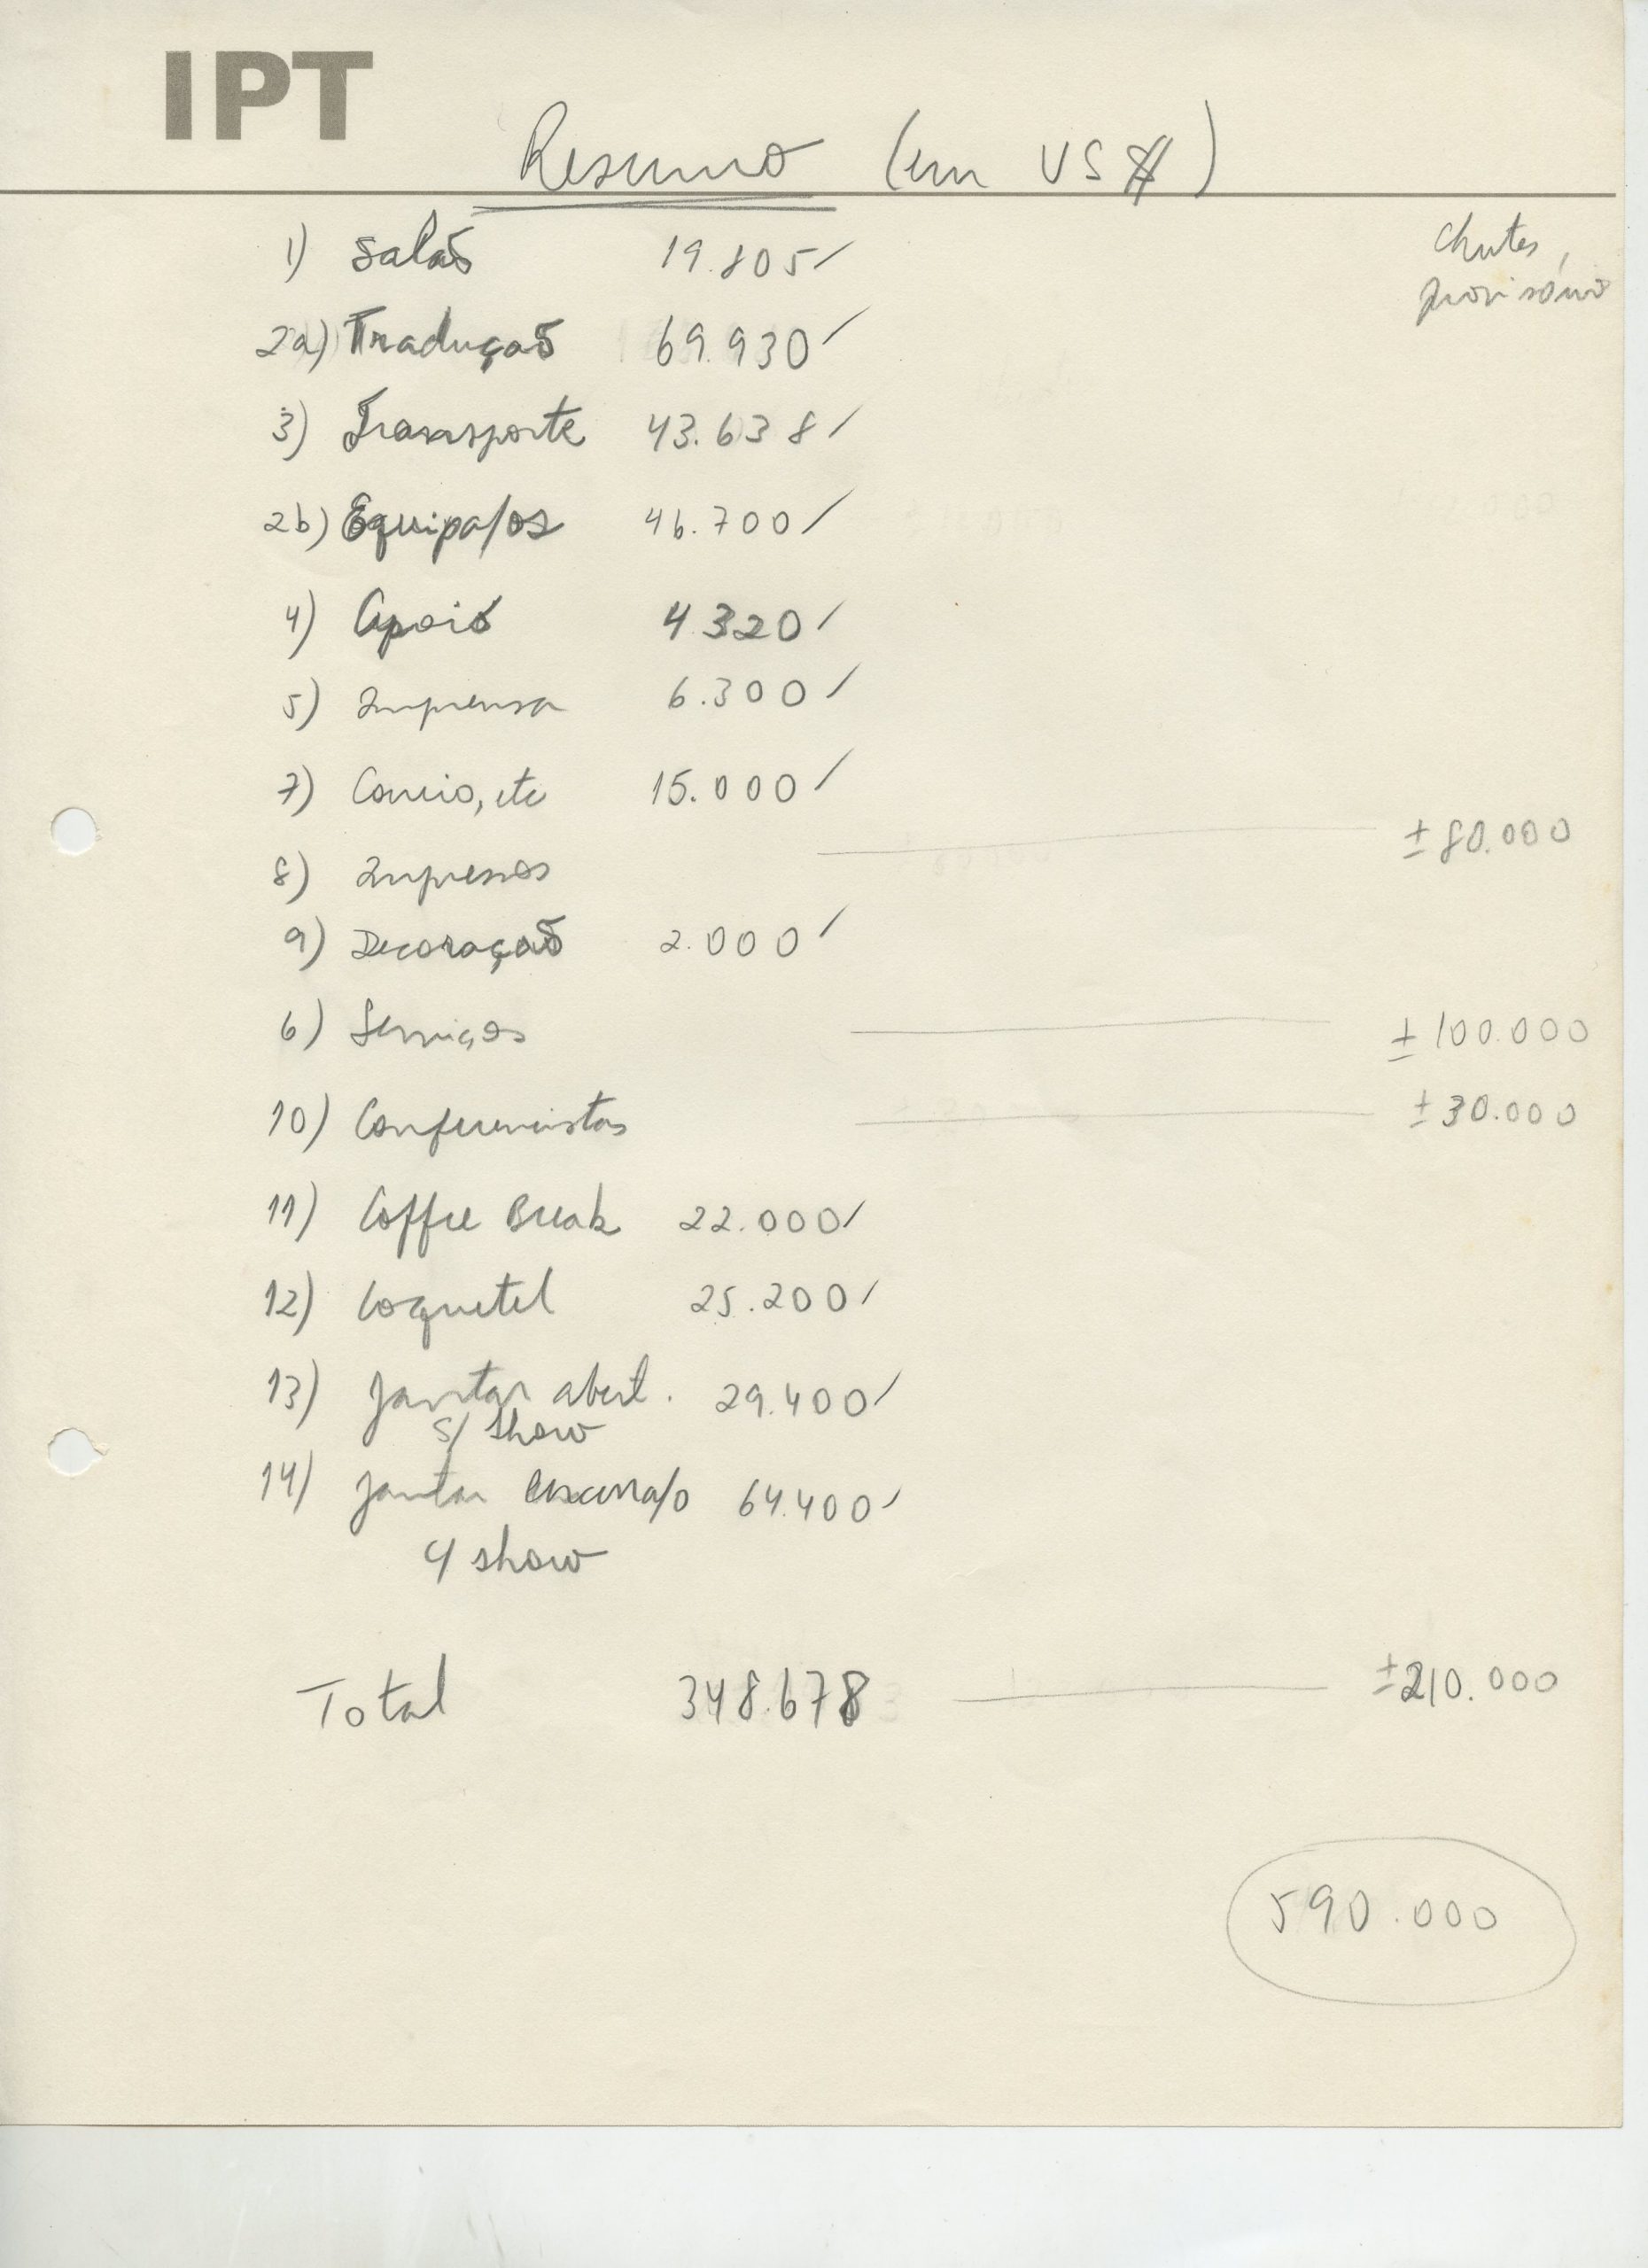 IPT
Resumo (em US$)
chutes,
provisório
1) Salas 19.805/
2a) Tradução 69.930/
3) Transporte 43.638/
2b) Equipa/os 46.700/
4) Apoio 4.320/
5) Imprensa 6.300/
7) Correio, etc 15.000/
8) Impressos ±80.000
9) Decoração 2.000/
6) Serviços ±100.000
10) Conferencistas ±30.000
11) Coffee Break 22.000/
12) Coquetel 25.200/
13) Jantar abert. 29.400/
s/ show
14) Jantar encerra/o 64.400/
c/ show
Total 348.678 ±210.000
590.000